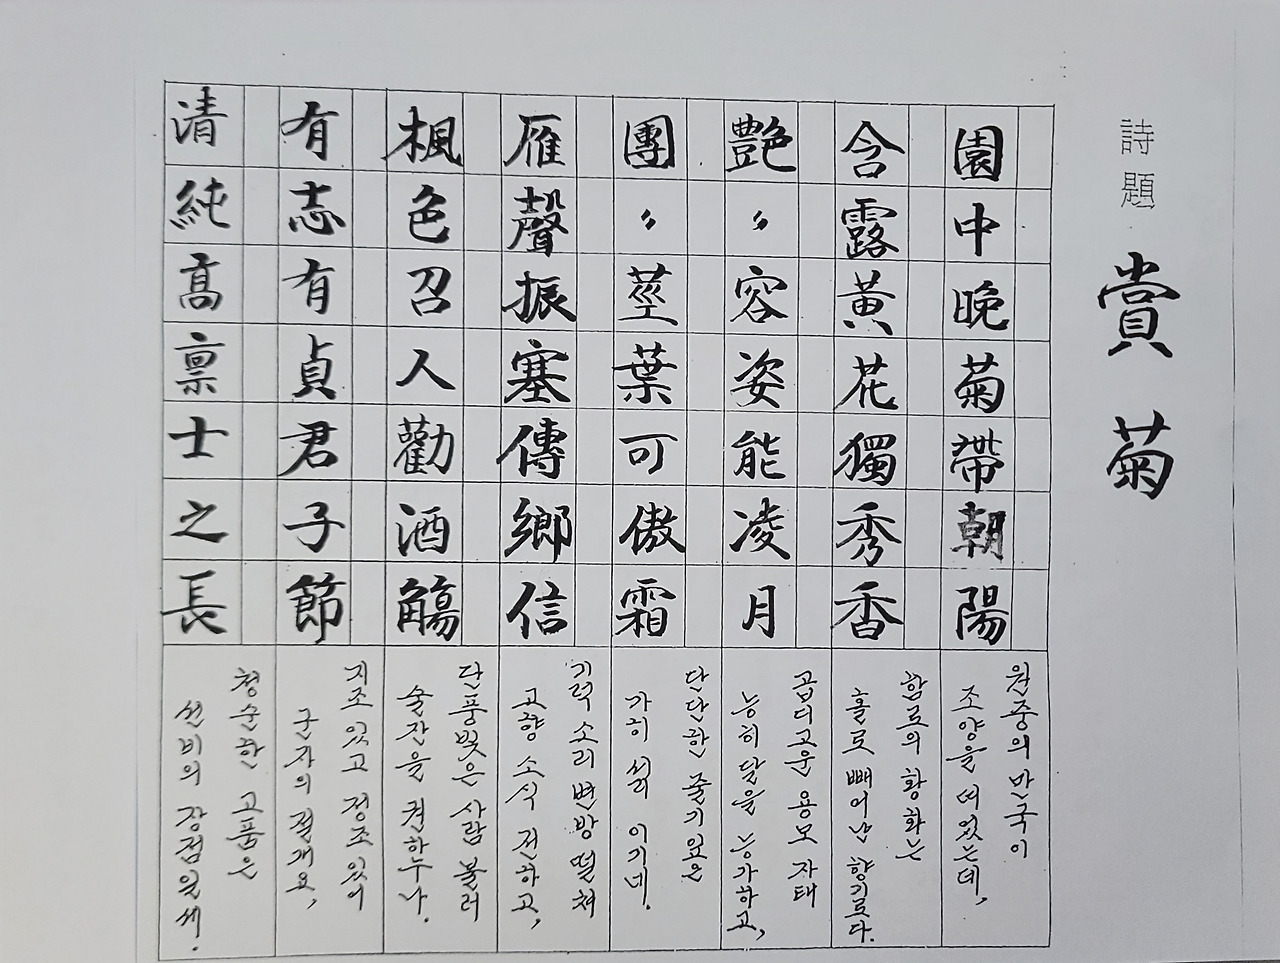 詩題
賞菊
園中晩菊帶朝陽
원중의 만국이
조양을 띠었는데,
含露黃花獨秀香
함로의 황화는
홀로 빼어난 향기로다.
艶〃容姿能凌月
곱디고운 용모 자태
능히 달을 능가하고,
團〃莖葉可傲霜
단단한 줄기 잎은
가히 서리 이기네.
雁聲振塞傳鄕信
기력 소리 변방 떨쳐
고향 소식 전하고,
楓色召人勸酒觴
단풍빛은 사람 불러
술잔을 권하누나.
有志有貞君子節
지조 있고 정조 있어
군자의 절개요,
清純高稟士之長
청순한 고품은
선비의 장점일세.